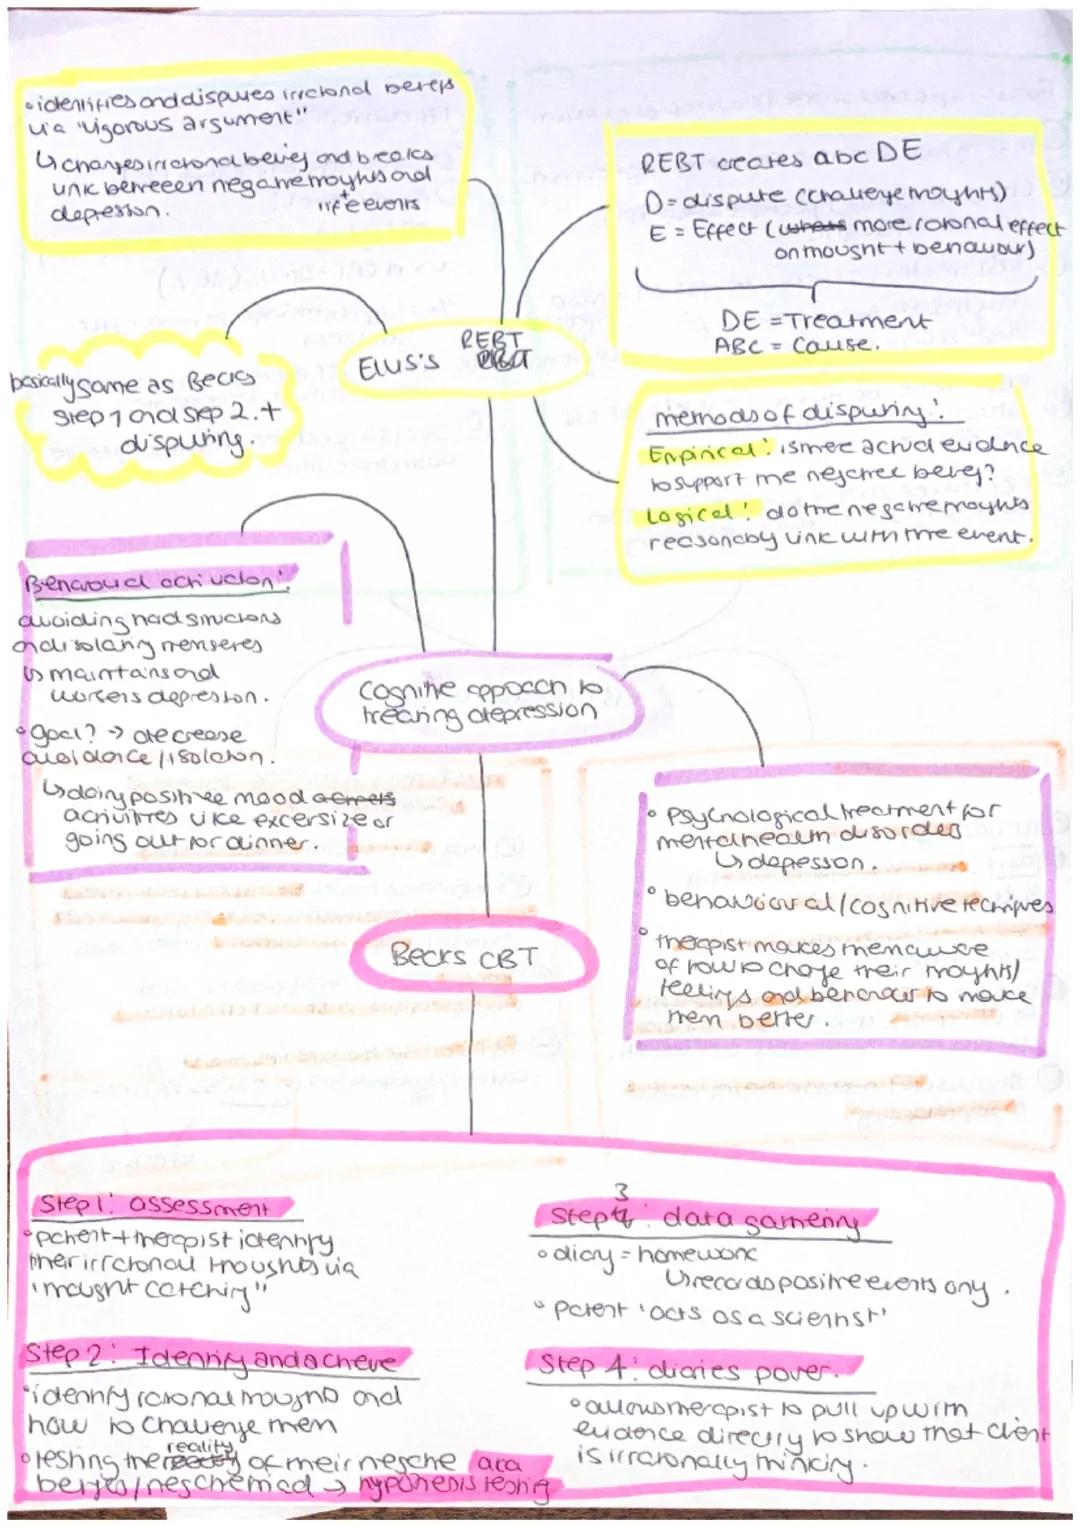 • identifies and disputes irrational beleifs
via "vigorous argument"
↳ changes irrational beleif and breaks
link between negative thoughts and
depression. life events
REBT creates abc DE
D = dispute (challenge thoughts)
E = Effect (whats more rational effect
on thought + behaviour)
DE = Treatment
ABC = Cause.
Ellis's REBT
basically same as Becks
step 1 and step 2. +
disputing.
methods of disputing:
Empirical: is there actual evidence
to support the negative beleif?
Logical: do the negative thoughts
reasonably link with the event.
Behavioural activation:
avoiding hard situations
and isolating themselves
↳ maintains and
worsens depression.
• goal? → decrease
avoidance / isolation.
↳ doing positive mood
activities like excersize or
going out for dinner.
Cognitive approach to
treating depression
• Psychological treatment for
mental health disorders
↳ depression.
• behavioural / cognitive techniques
• therapist makes them aware
of how to change their thoughts/
feelings and behaviour to make
them better.
Becks CBT
Step 1: assessment
• patient + therapist identify
their irrational thoughts via
"thought catching"
Step 2: Identify and achieve
• identify rational thoughts and
how to challenge them
• testing the reality of their negative
beliefs / neg schemas → aka hypothesis testing
Step 3: data gathering
• diary = homework
↳ records positive events only.
• patient 'acts as a scientist'
Step 4: diaries power.
• allows therapist to pull up with
evidence directly to show that client
is irrationally thinking.